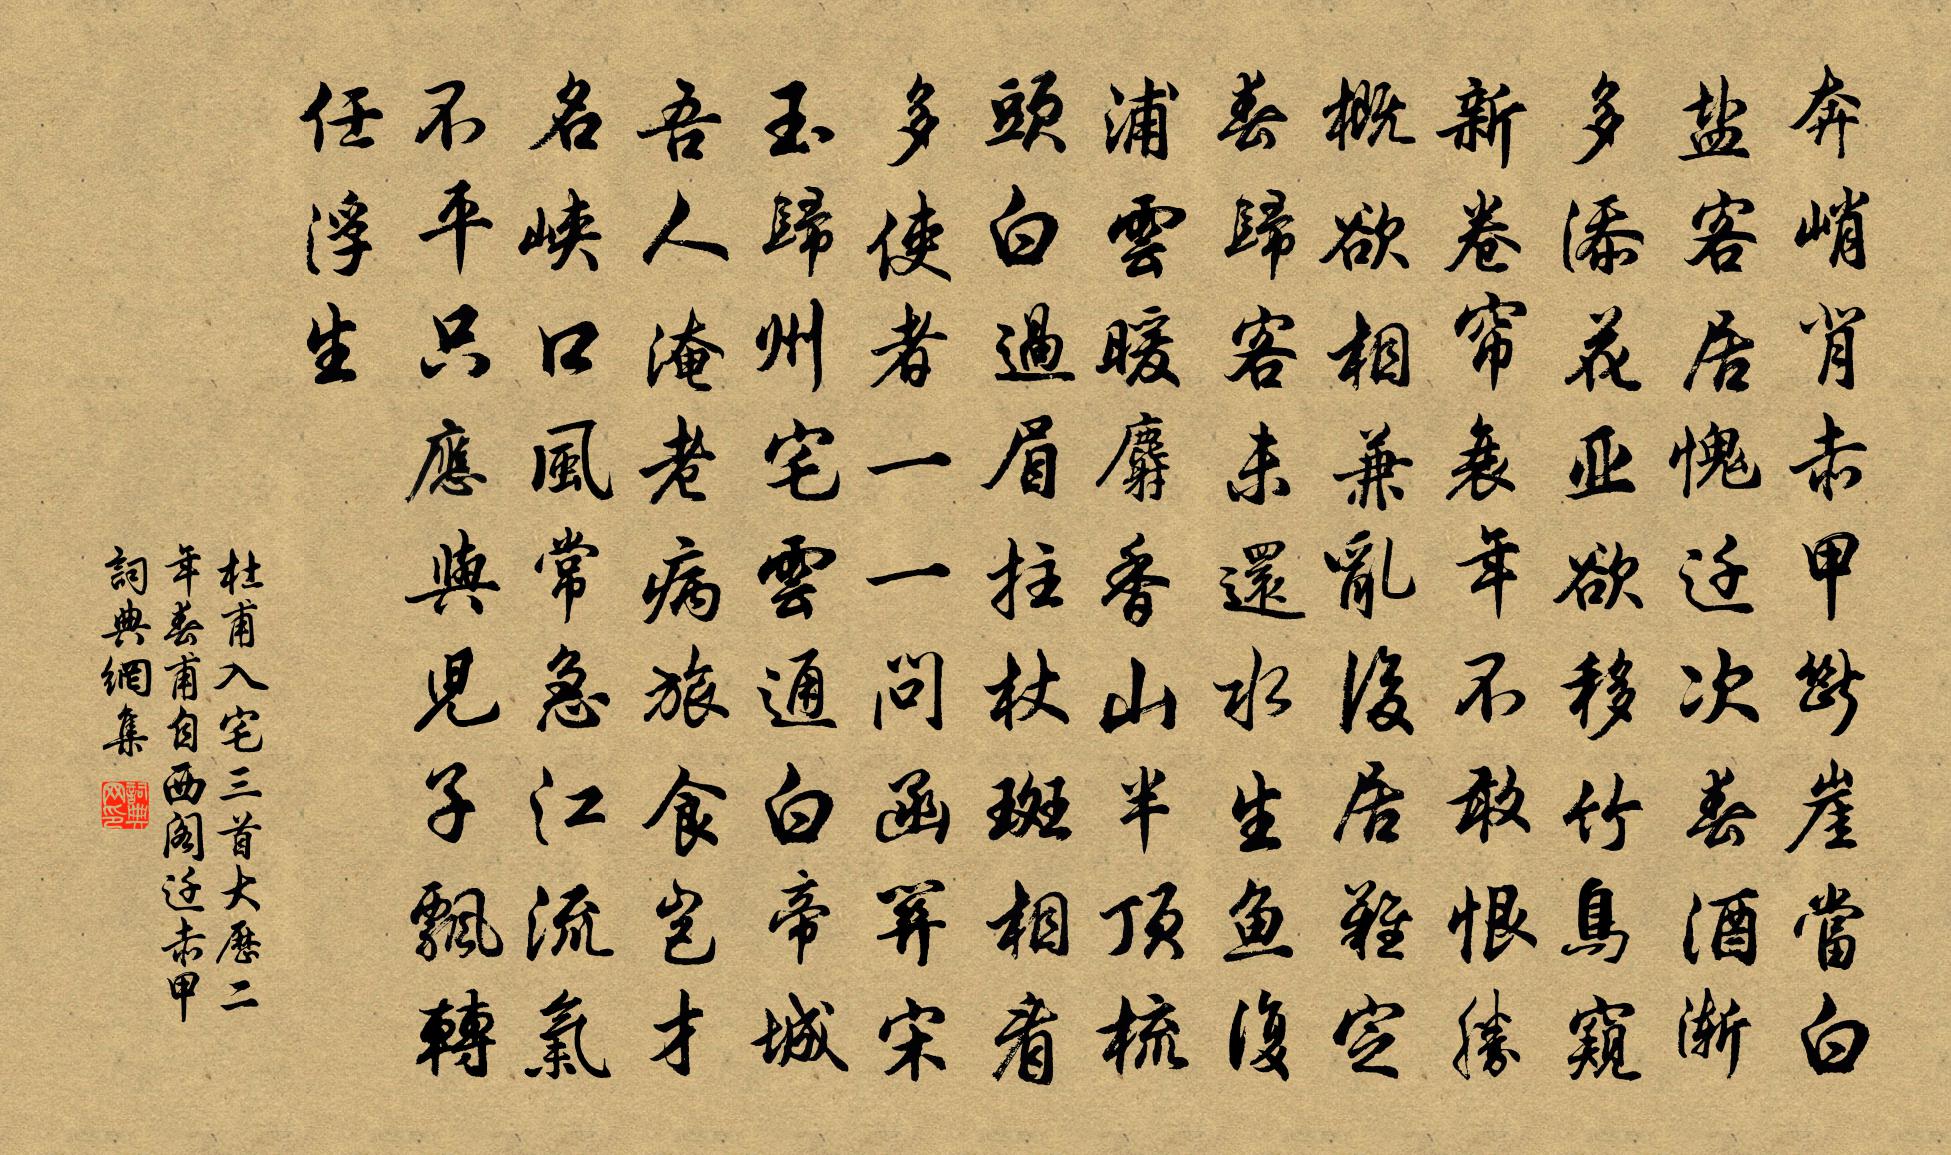 奔峭背赤甲斷崖當白
盐客居愧迁次春酒渐
多添花亚欲移竹鳥窺
新卷帘衰年不敢恨勝
概欲相兼亂後居難定
春歸客未還水生魚復
浦雲暖麝香山半頂梳
頭白過眉拄杖斑相看
多使者一一問函關宋
玉歸州宅雲通白帝城
吾人淹老病旅食豈才
名峽口風常急江流氣
不平只應與兒子飄轉
任浮生
杜甫入宅三首大历二
年春甫自西阁迁赤甲
詞典網集
詞典网印